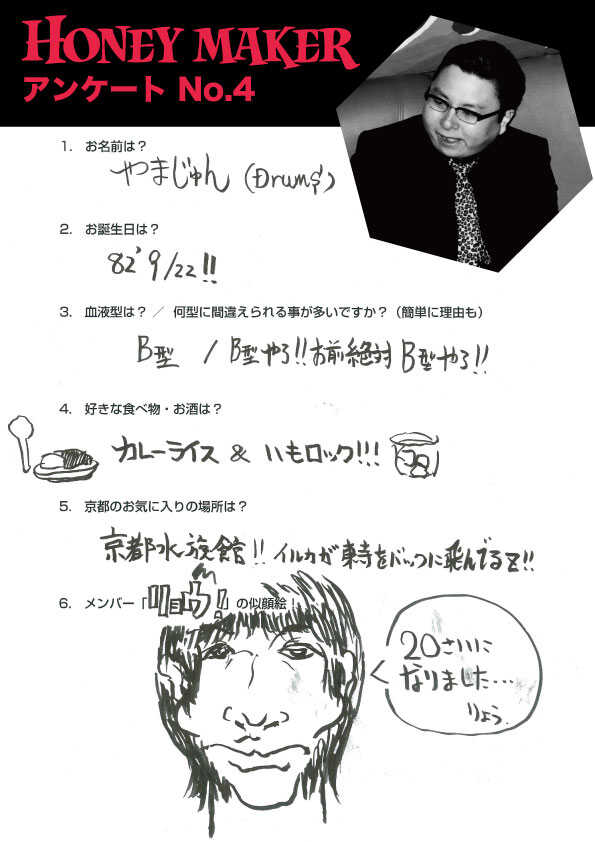 HONEY MAKER
アンケート No.4
1. お名前は？
やまじゅん (Drums)
2. お誕生日は？
82' 9/22!!
3. 血液型は？ ／ 何型に間違えられる事が多いですか？（簡単に理由も）
B型 / B型やろ!!お前絶対B型やろ!!
4. 好きな食べ物・お酒は？
カレーライス & いもロック!!!
5. 京都のお気に入りの場所は？
京都水族館!! イルカが東寺をバックに飛んでるZ!!
6. メンバー「リョウ!!」の似顔絵！
20さいに
なりました…
りょう